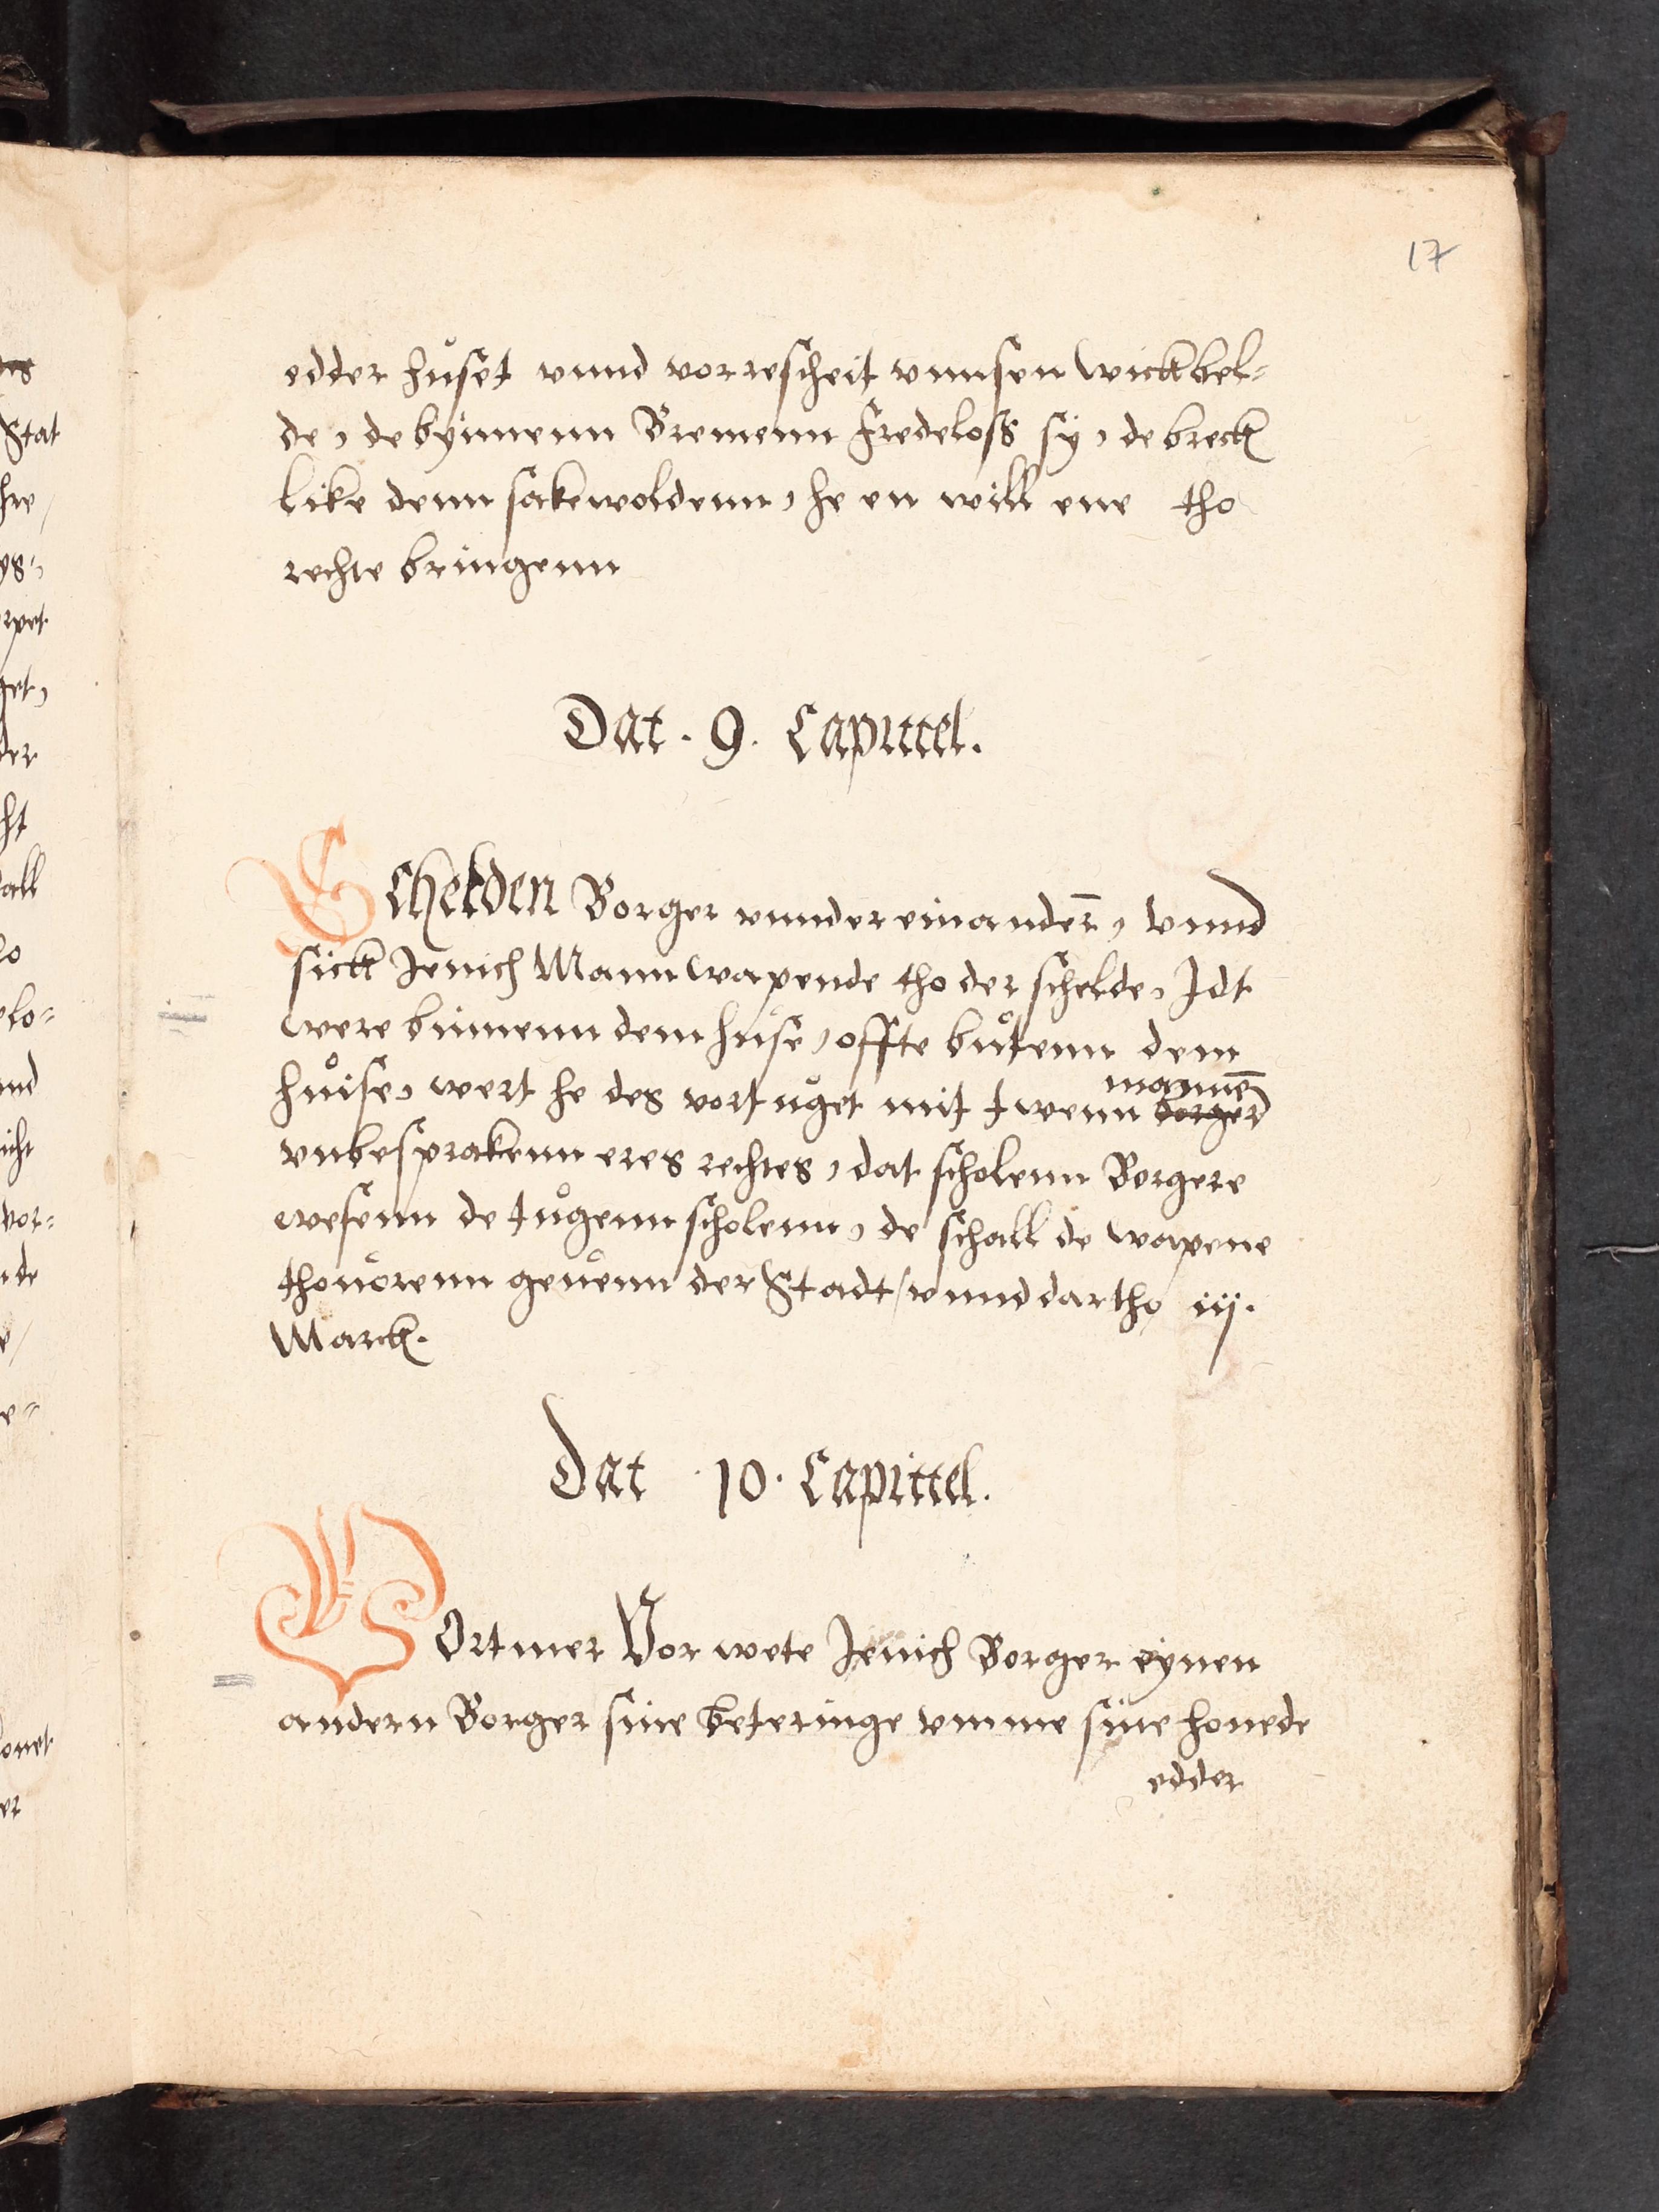 17
edder huset vnnd vorrescheit vnnsen wickbel=
de, de bynnenn Bremenn fredeloss sy, de breck
like denn sakewoldenn, he en will ene tho
rechte bringenn
Dat . 9. Capittel.
Schelden Borger vnnder einander, vnnd
sick Jenich Mann wapende tho der schelde, Idt
were binnenn dem huse, offte butenn dem
mannen
huise, wert he des vortuget mit twenn borger
vnbesprakenn eres rechtes, dat scholenn Borgere
wesenn de tugenn scholenn, de schall de wapene
thouorenn geuenn der Stadt / vnnd dartho iij.
Marck.
Dat .10. Capittel.
VOrtmer Vorwete Jenich Borger eynen
andern Borger sine beteringe vmme sine honede
edder